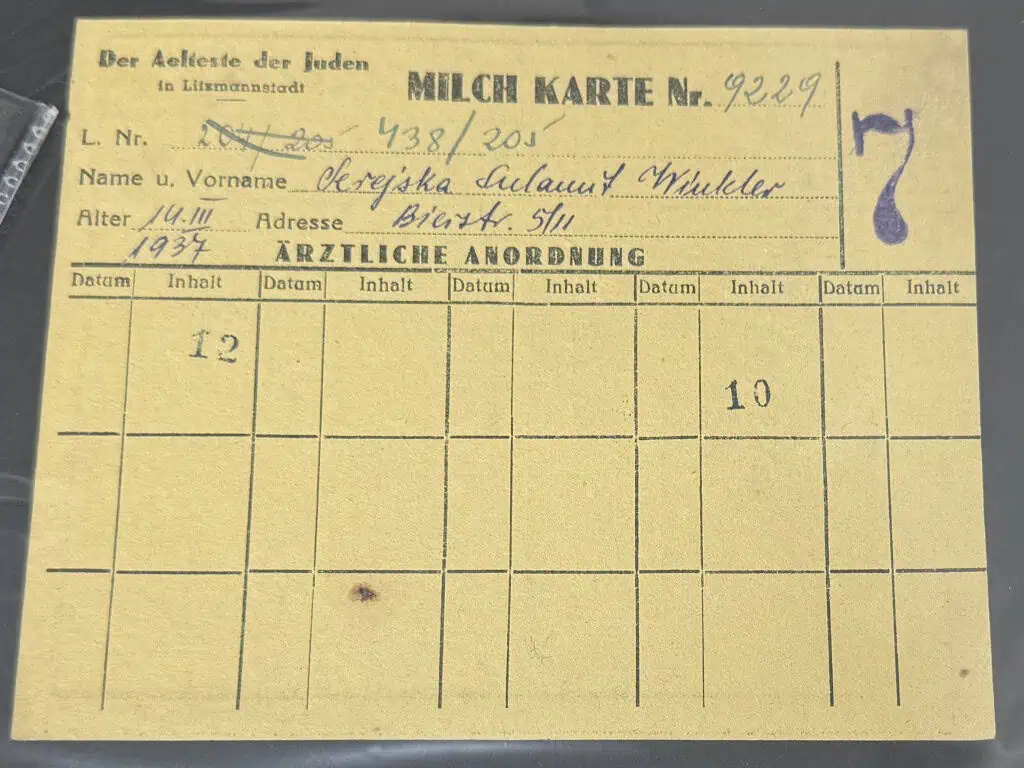 Der Aelteste der Juden
in Litzmannstadt
MILCH KARTE Nr. 9229
7
L. Nr. 204/205 438/205
Name u. Vorname Serejska Sulamit Winkler
Alter 14.III Adresse Bierstr. 5/11
1937
ÄRZTLICHE ANORDNUNG
Datum Inhalt Datum Inhalt Datum Inhalt Datum Inhalt Datum Inhalt
12
10